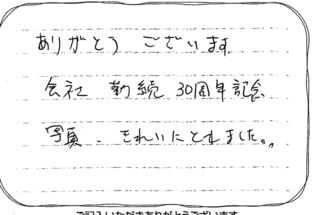 ありがとう ございます
会社 勤続 30周年記念
写真、きれいにとれました。
ご記入いただきありがとうございます